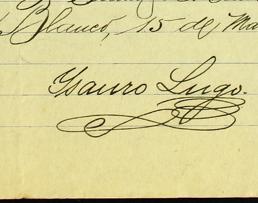 Blanco, 15 de Ma
Ysauro Lugo.